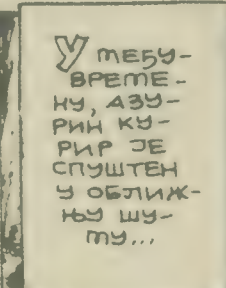 У МЕЂУ-
ВРЕМЕ-
НУ, АЗУ-
РИН КУ-
РИР ЈЕ
СПУШТЕН
У ОБЛИЖ-
ЊУ ШУ-
МУ...